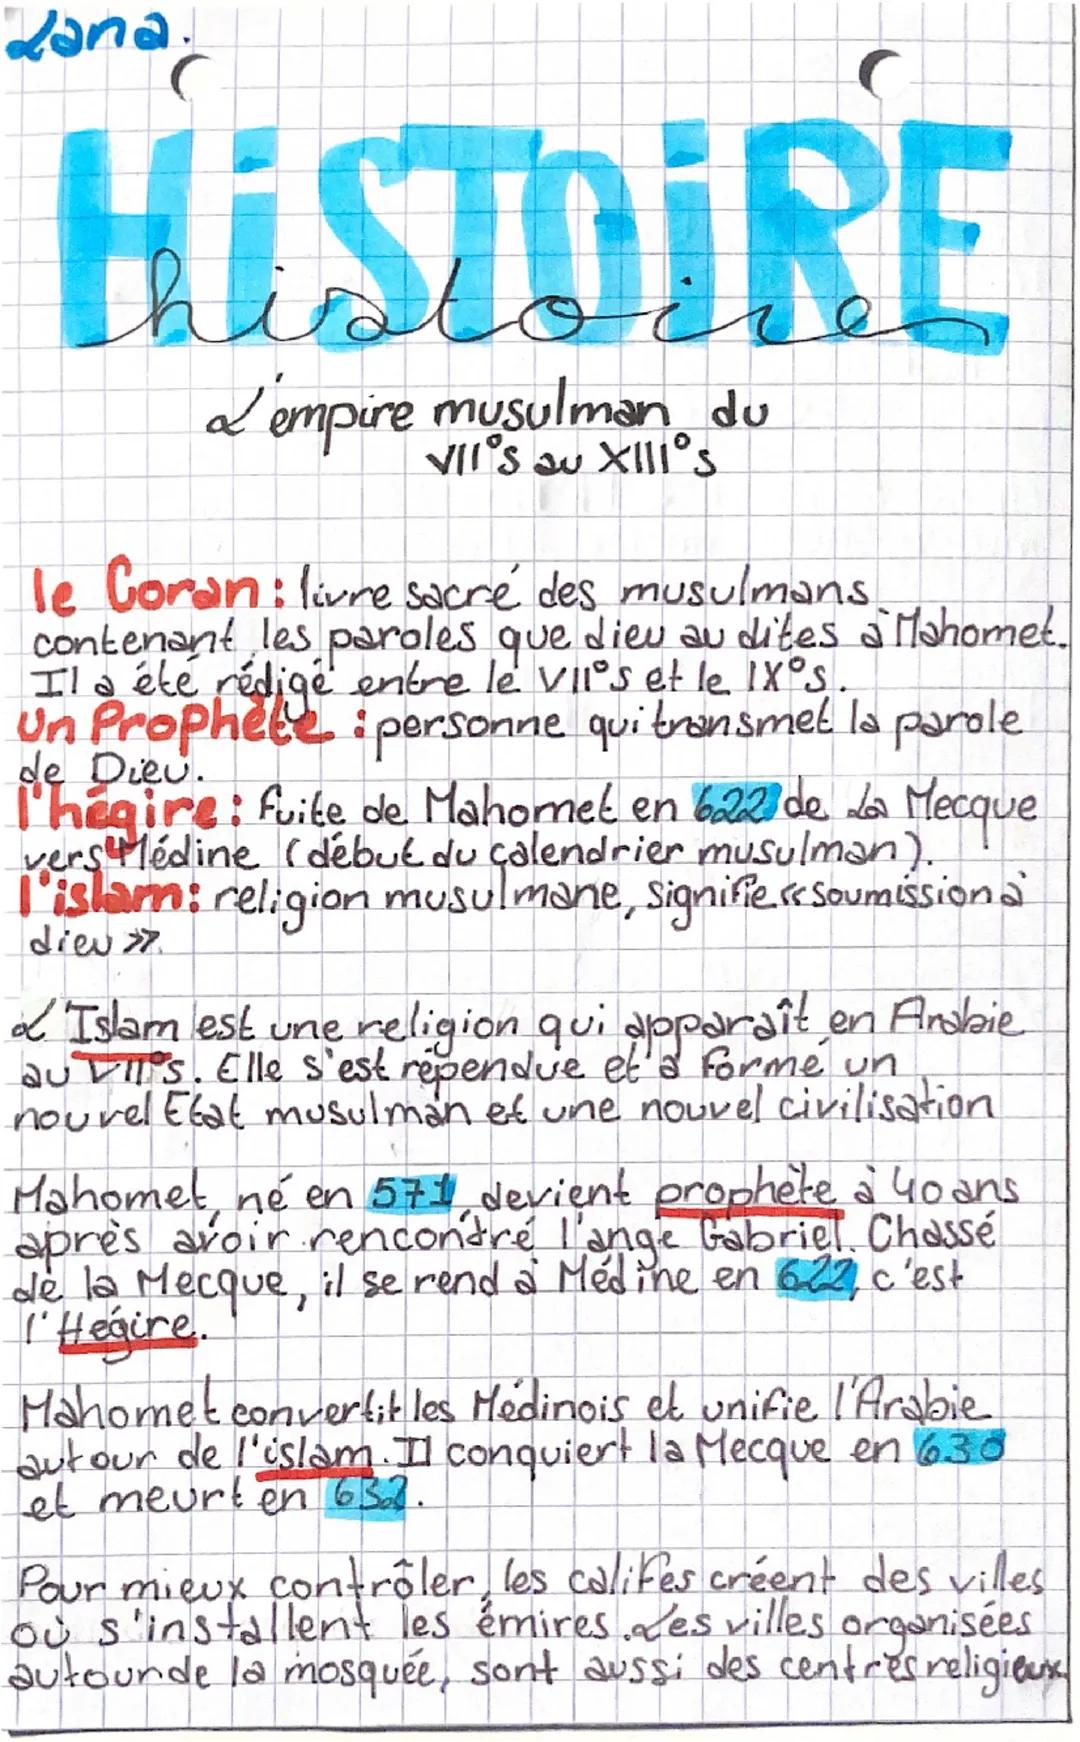 Lana.
HiSTOiRE
histoire
L'empire musulman du
VII°s au XIII°s
le Coran : livre sacré des musulmans
contenant les paroles que dieu au dites à Mahomet.
Il a été rédigé entre le VII°s et le IX°s.
Un Prophète : personne qui transmet la parole
de Dieu.
l'hégire : fuite de Mahomet en 622 de La Mecque
vers Médine (début du calendrier musulman).
l'islam : religion musulmane, signifie «soumission à
dieu ».
L'Islam est une religion qui apparaît en Arabie
au VII°s. Elle s'est répendue et a formé un
nouvel Etat musulman et une nouvel civilisation
Mahomet, né en 571, devient prophète à 40 ans
après avoir rencontré l'ange Gabriel. Chassé
de la Mecque, il se rend à Médine en 622, c'est
l'Hégire.
Mahomet convertit les Médinois et unifie l'Arabie
autour de l'islam. Il conquiert la Mecque en 630
et meurt en 632.
Pour mieux contrôler, les califes créent des villes
où s'installent les émires. Les villes organisées
autour de la mosquée, sont aussi des centres religieux